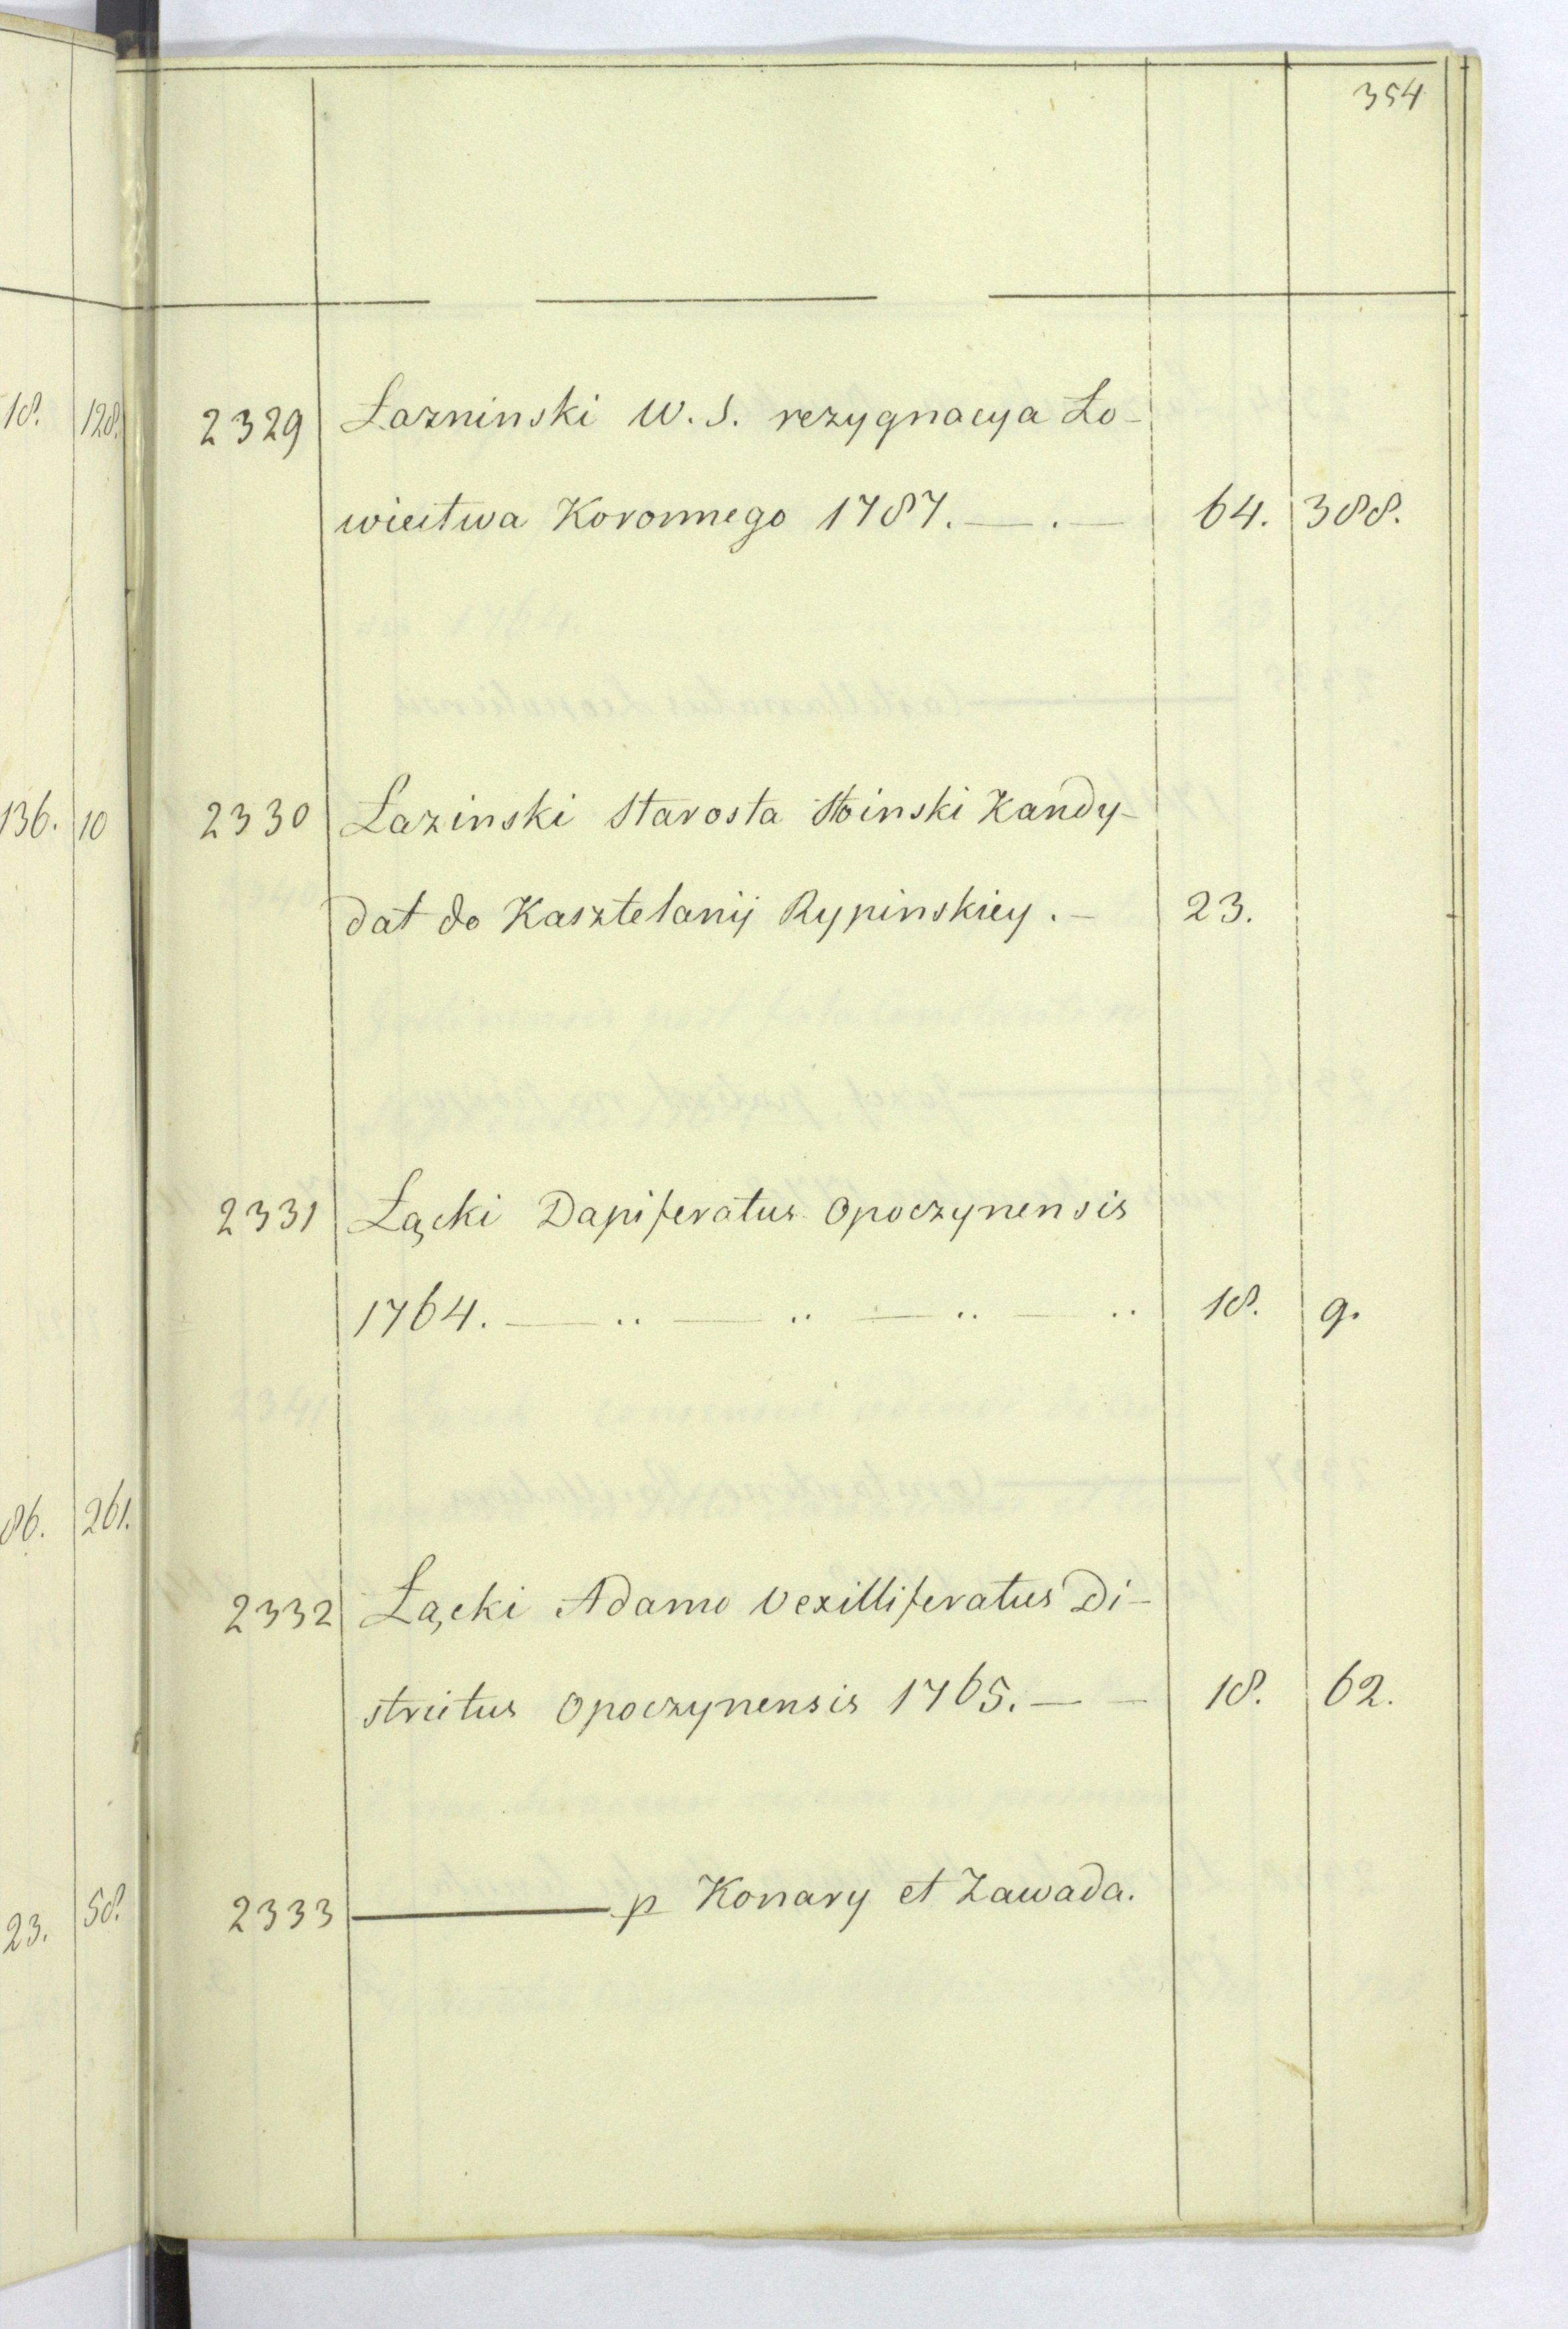 354
18. 128.
2329 Łazninski W. S. rezygnacya Ło-
wiectwa Koronnego 1787. — . — 64. 388.
136. 10
2330 Łazinski Starosta Kandy-
dat do Kasztelanij Rypinskiey. — 23.
2331 Łącki Dapiferatus Opoczynensis
1764. — .. — .. — .. — .. 18. 9.
86. 261.
2332 Łącki Adamo Vexilliferatus Di-
strictus Opoczynensis 1765. — — 18. 62.
23. 58.
2333 ——— p Konary et Zawada.